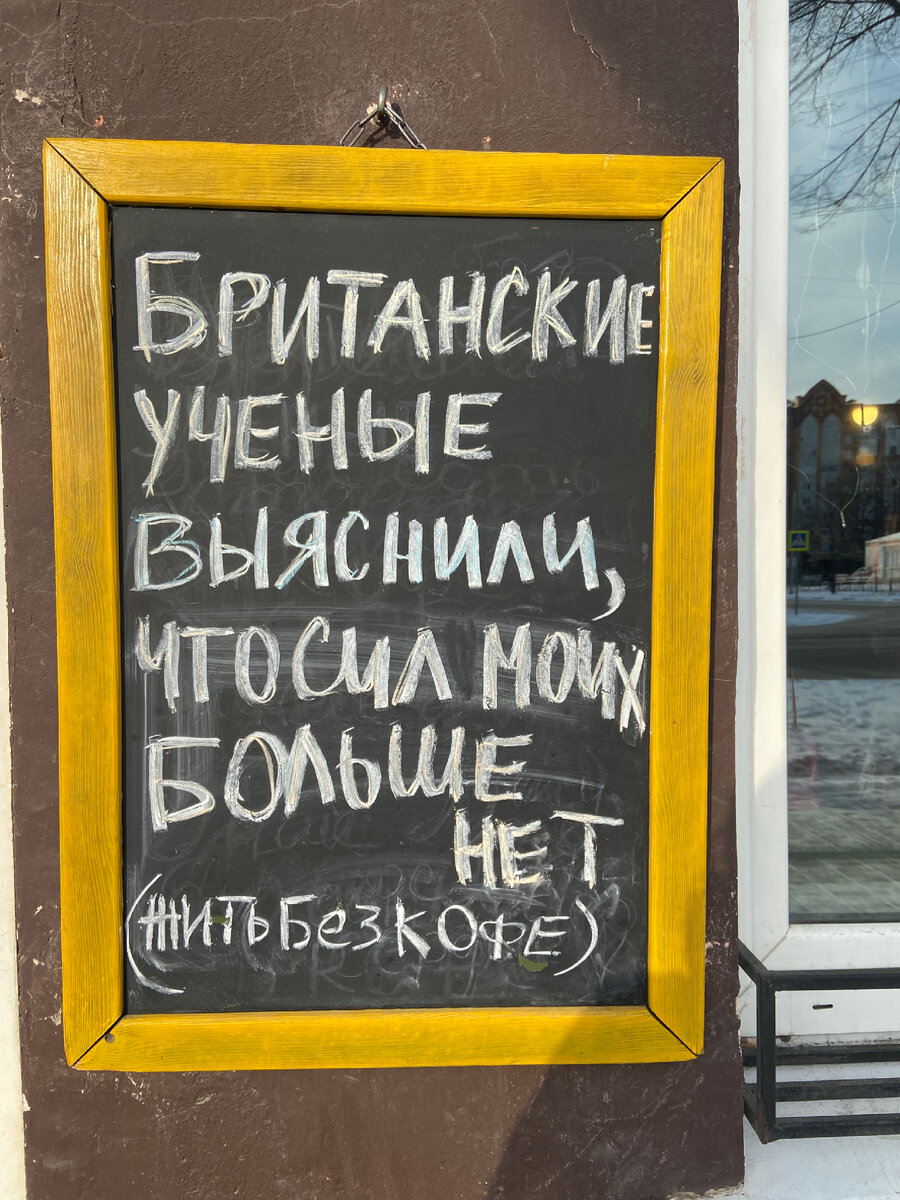 БРИТАНСКИЕ
УЧЕНЫЕ
ВЫЯСНИЛИ,
ЧТО СИЛ МОИХ
БОЛЬШЕ
НЕТ
(ЖИТЬ БЕЗ КОФЕ)